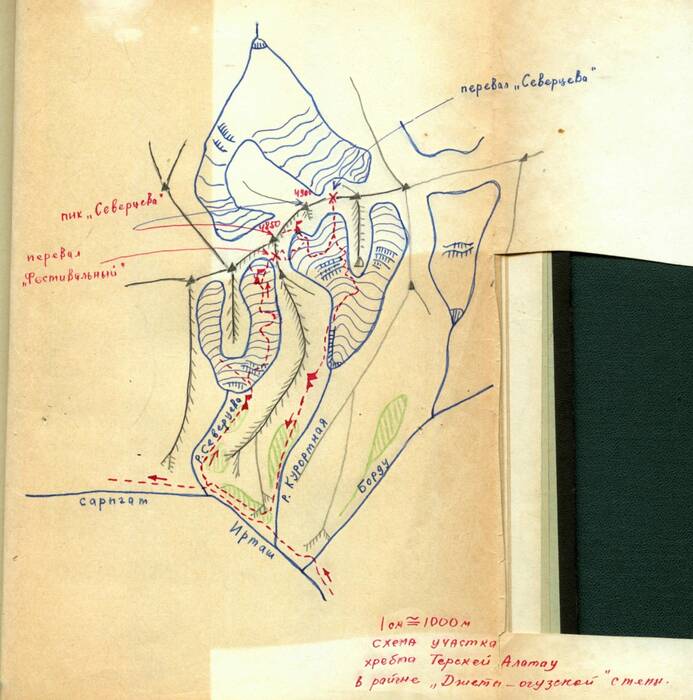 перевал „Северцева"
4900
пик „Северцева"
4850
перевал
„Фестивальный"
р. Северцева
р. Курортная
Борду
сарпгат
Ирташ
1 см ≅ 1000 м
схема участка
хребта Терскей Алатау
в районе „Джеты-огузской" стены.